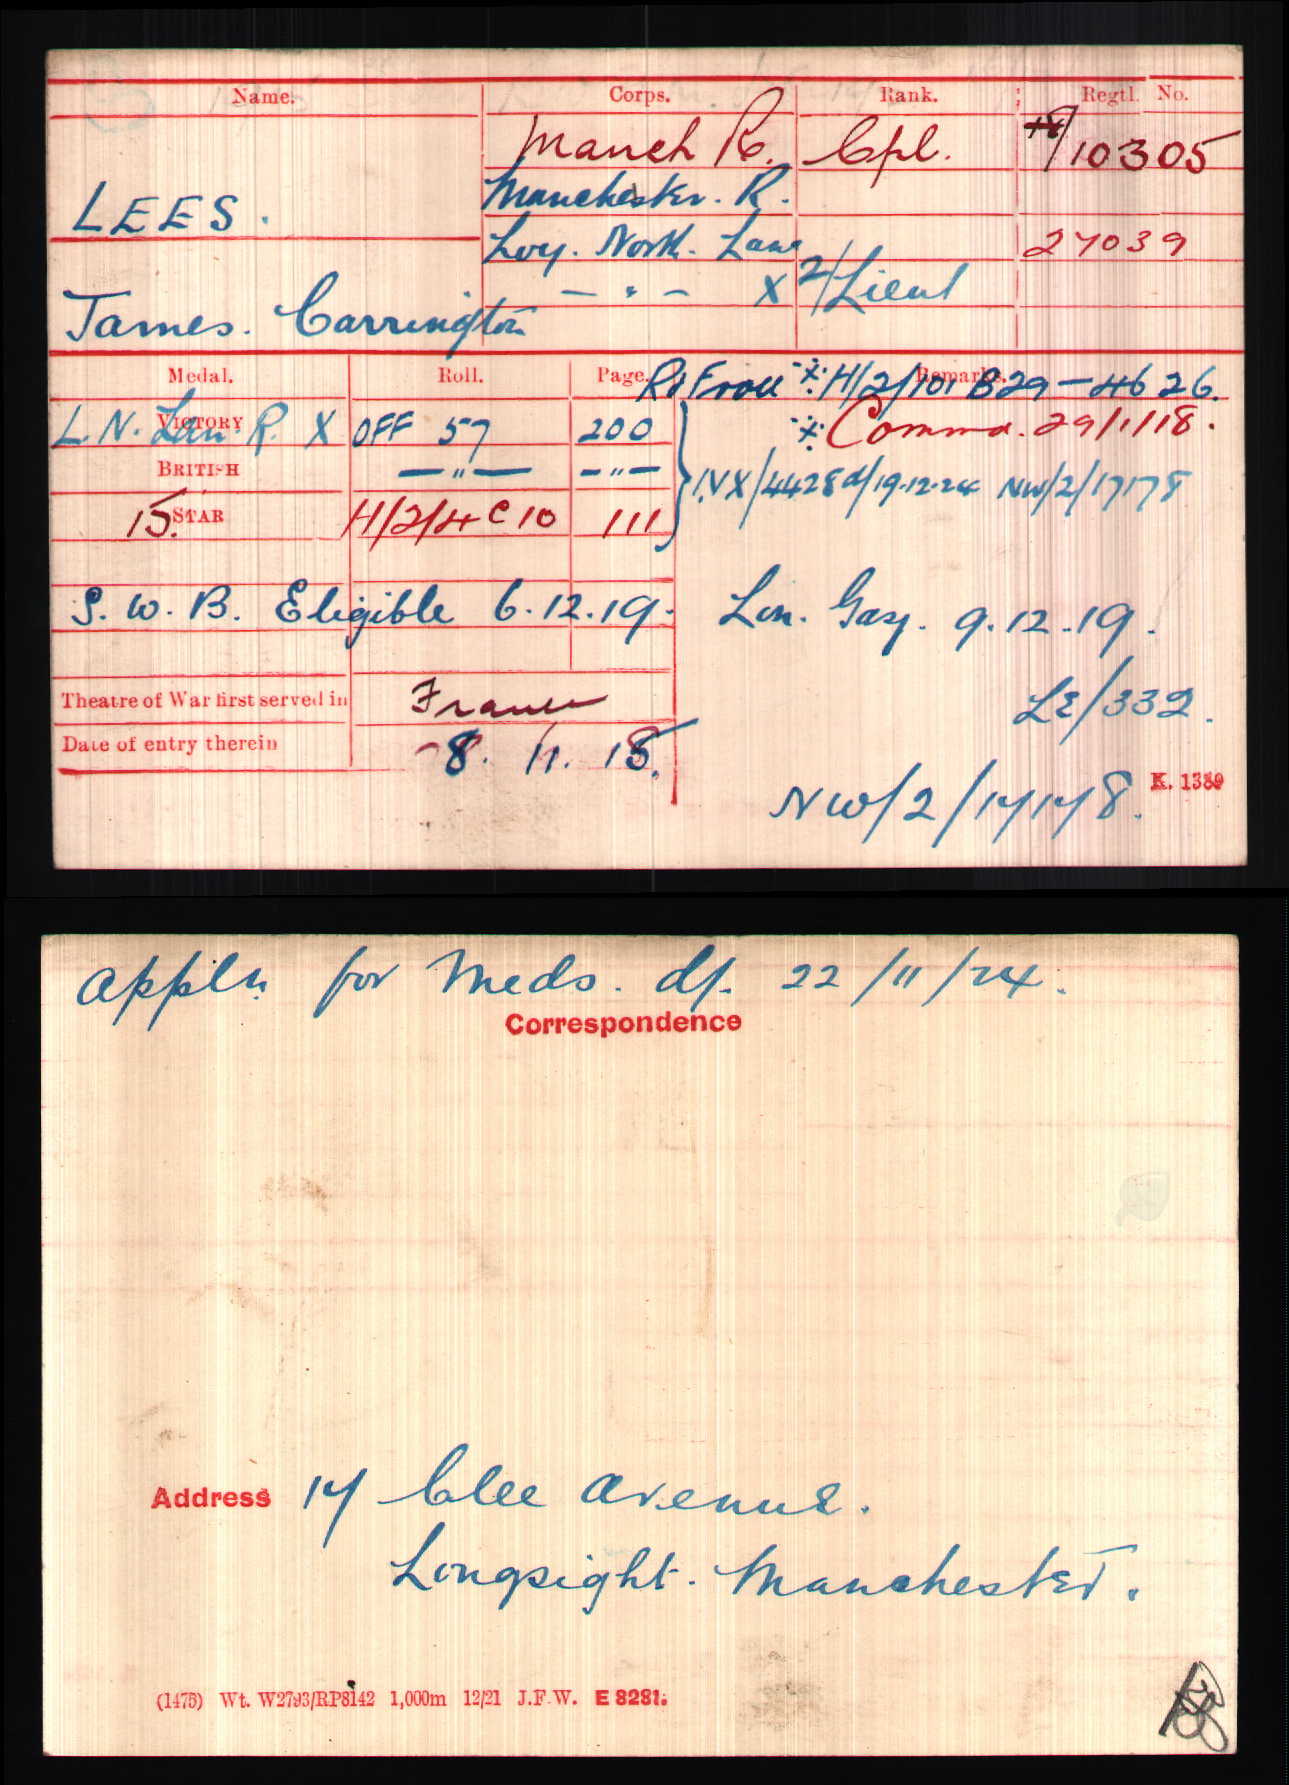 Name. Corps. Rank. Regtl. No.
Manch R. Cpl. 10305
LEES. Manchester. R.
Loy. North. Lanc 27039
James. Carrington — " — X 2/Lieut
Medal. Roll. Page. Remarks.
H/2/101 B29-4626.
L.N. Lan. R. X VICTORY OFF 57 200
Commn. 29/1/18.
BRITISH —"— —"—
IVX/4428 d/19.12.24 NW/2/17178
15 STAR H/2/4 C 10 111
S. W. B. Eligible 6.12.19. Lon. Gaz. 9.12.19.
Theatre of War first served in France
LE/332.
Date of entry therein 8. 11. 15.
NW/2/17178. K. 1380
Appln for Meds. df. 22/11/24.
Correspondence
Address 17 Clee Avenue.
Longsight. Manchester.
(1475) Wt. W2793/RP8142 1,000m 12/21 J.F.W. E 8281.